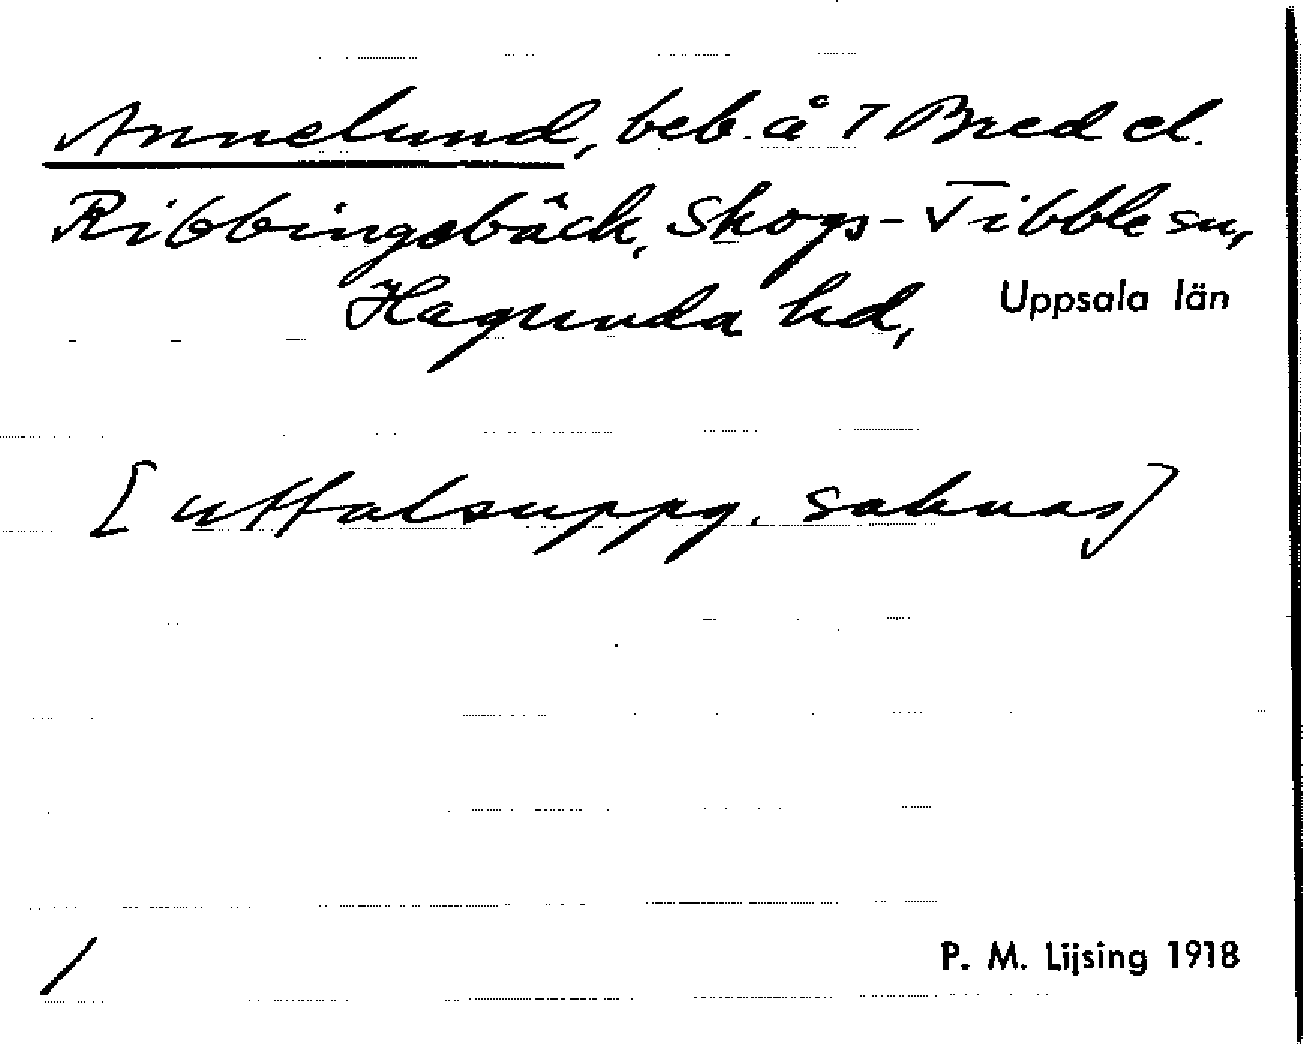 Annelund, beb. å 7 Bred el.
Ribbingsbäck, Skogs-Tibble sn,
Hagunda hd, Uppsala län
[uttalsuppg. saknas]
P. M. Lijsing 1918